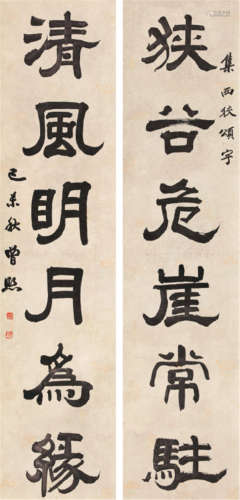 集西狹頌字
狹谷危崖常駐
清風明月爲緣
己未秋曾熙